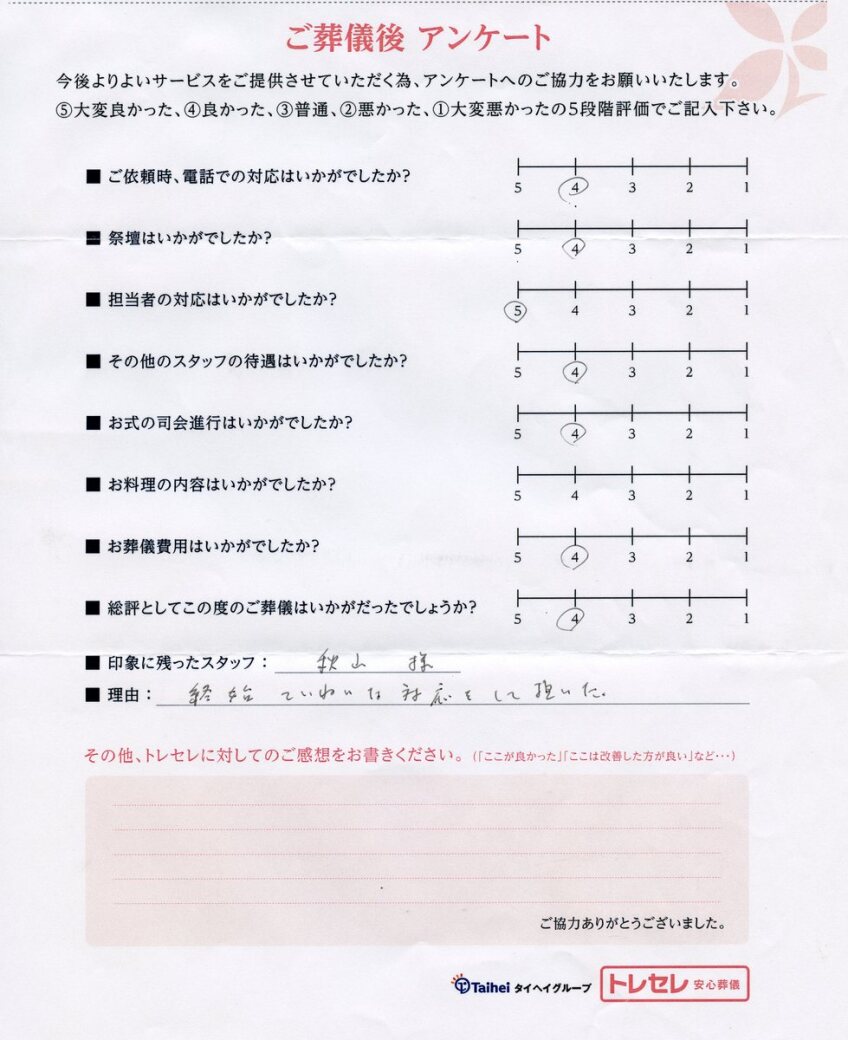 ご葬儀後 アンケート
今後よりよいサービスをご提供させていただく為、アンケートへのご協力をお願いいたします。
⑤大変良かった、④良かった、③普通、②悪かった、①大変悪かったの5段階評価でご記入下さい。
■ ご依頼時、電話での対応はいかがでしたか?
5 4 3 2 1
■ 祭壇はいかがでしたか?
5 4 3 2 1
■ 担当者の対応はいかがでしたか?
5 4 3 2 1
■ その他のスタッフの待遇はいかがでしたか?
5 4 3 2 1
■ お式の司会進行はいかがでしたか?
5 4 3 2 1
■ お料理の内容はいかがでしたか?
5 4 3 2 1
■ お葬儀費用はいかがでしたか?
5 4 3 2 1
■ 総評としてこの度のご葬儀はいかがだったでしょうか?
5 4 3 2 1
■ 印象に残ったスタッフ： 秋山 様
■ 理由： 終始 ていねいな対応をして頂いた。
その他、トレセレに対してのご感想をお書きください。(「ここが良かった」「ここは改善した方が良い」など・・・)
ご協力ありがとうございました。
Taihei タイヘイグループ トレセレ 安心葬儀